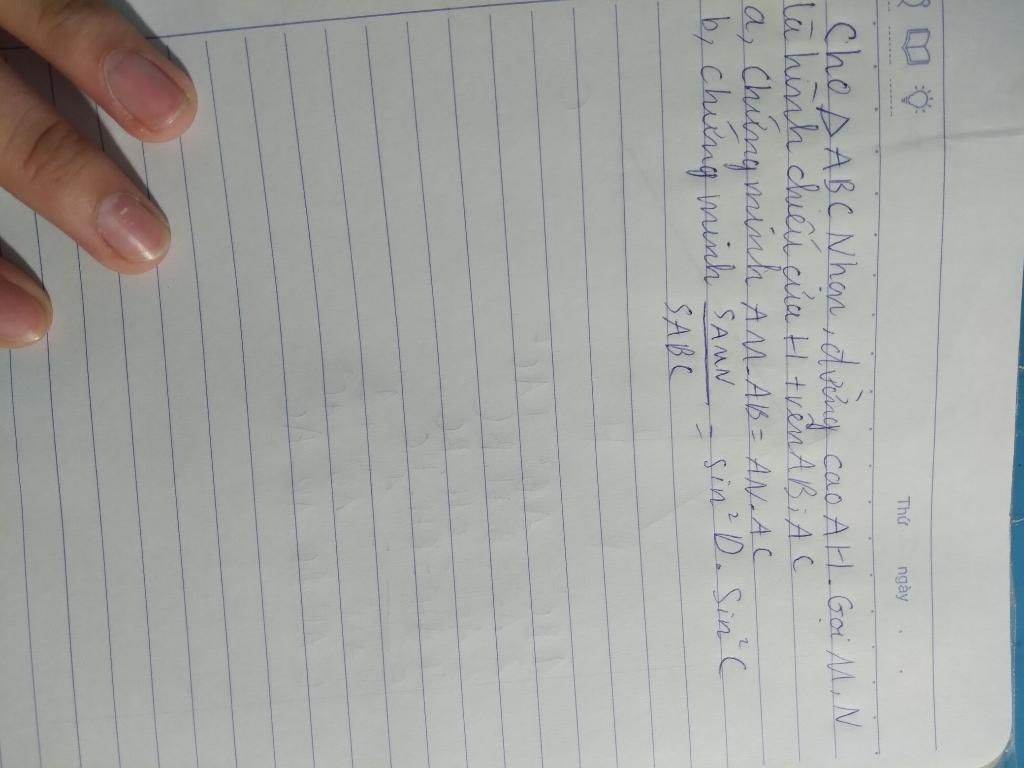 Thứ ngày
Cho Δ ABC Nhọn, đường cao AH. Gọi M, N
là hình chiếu của H trên AB; AC
a, Chứng minh AM.AB = AN.AC
b, Chứng minh SAMN / SABC = sin²B. Sin²C